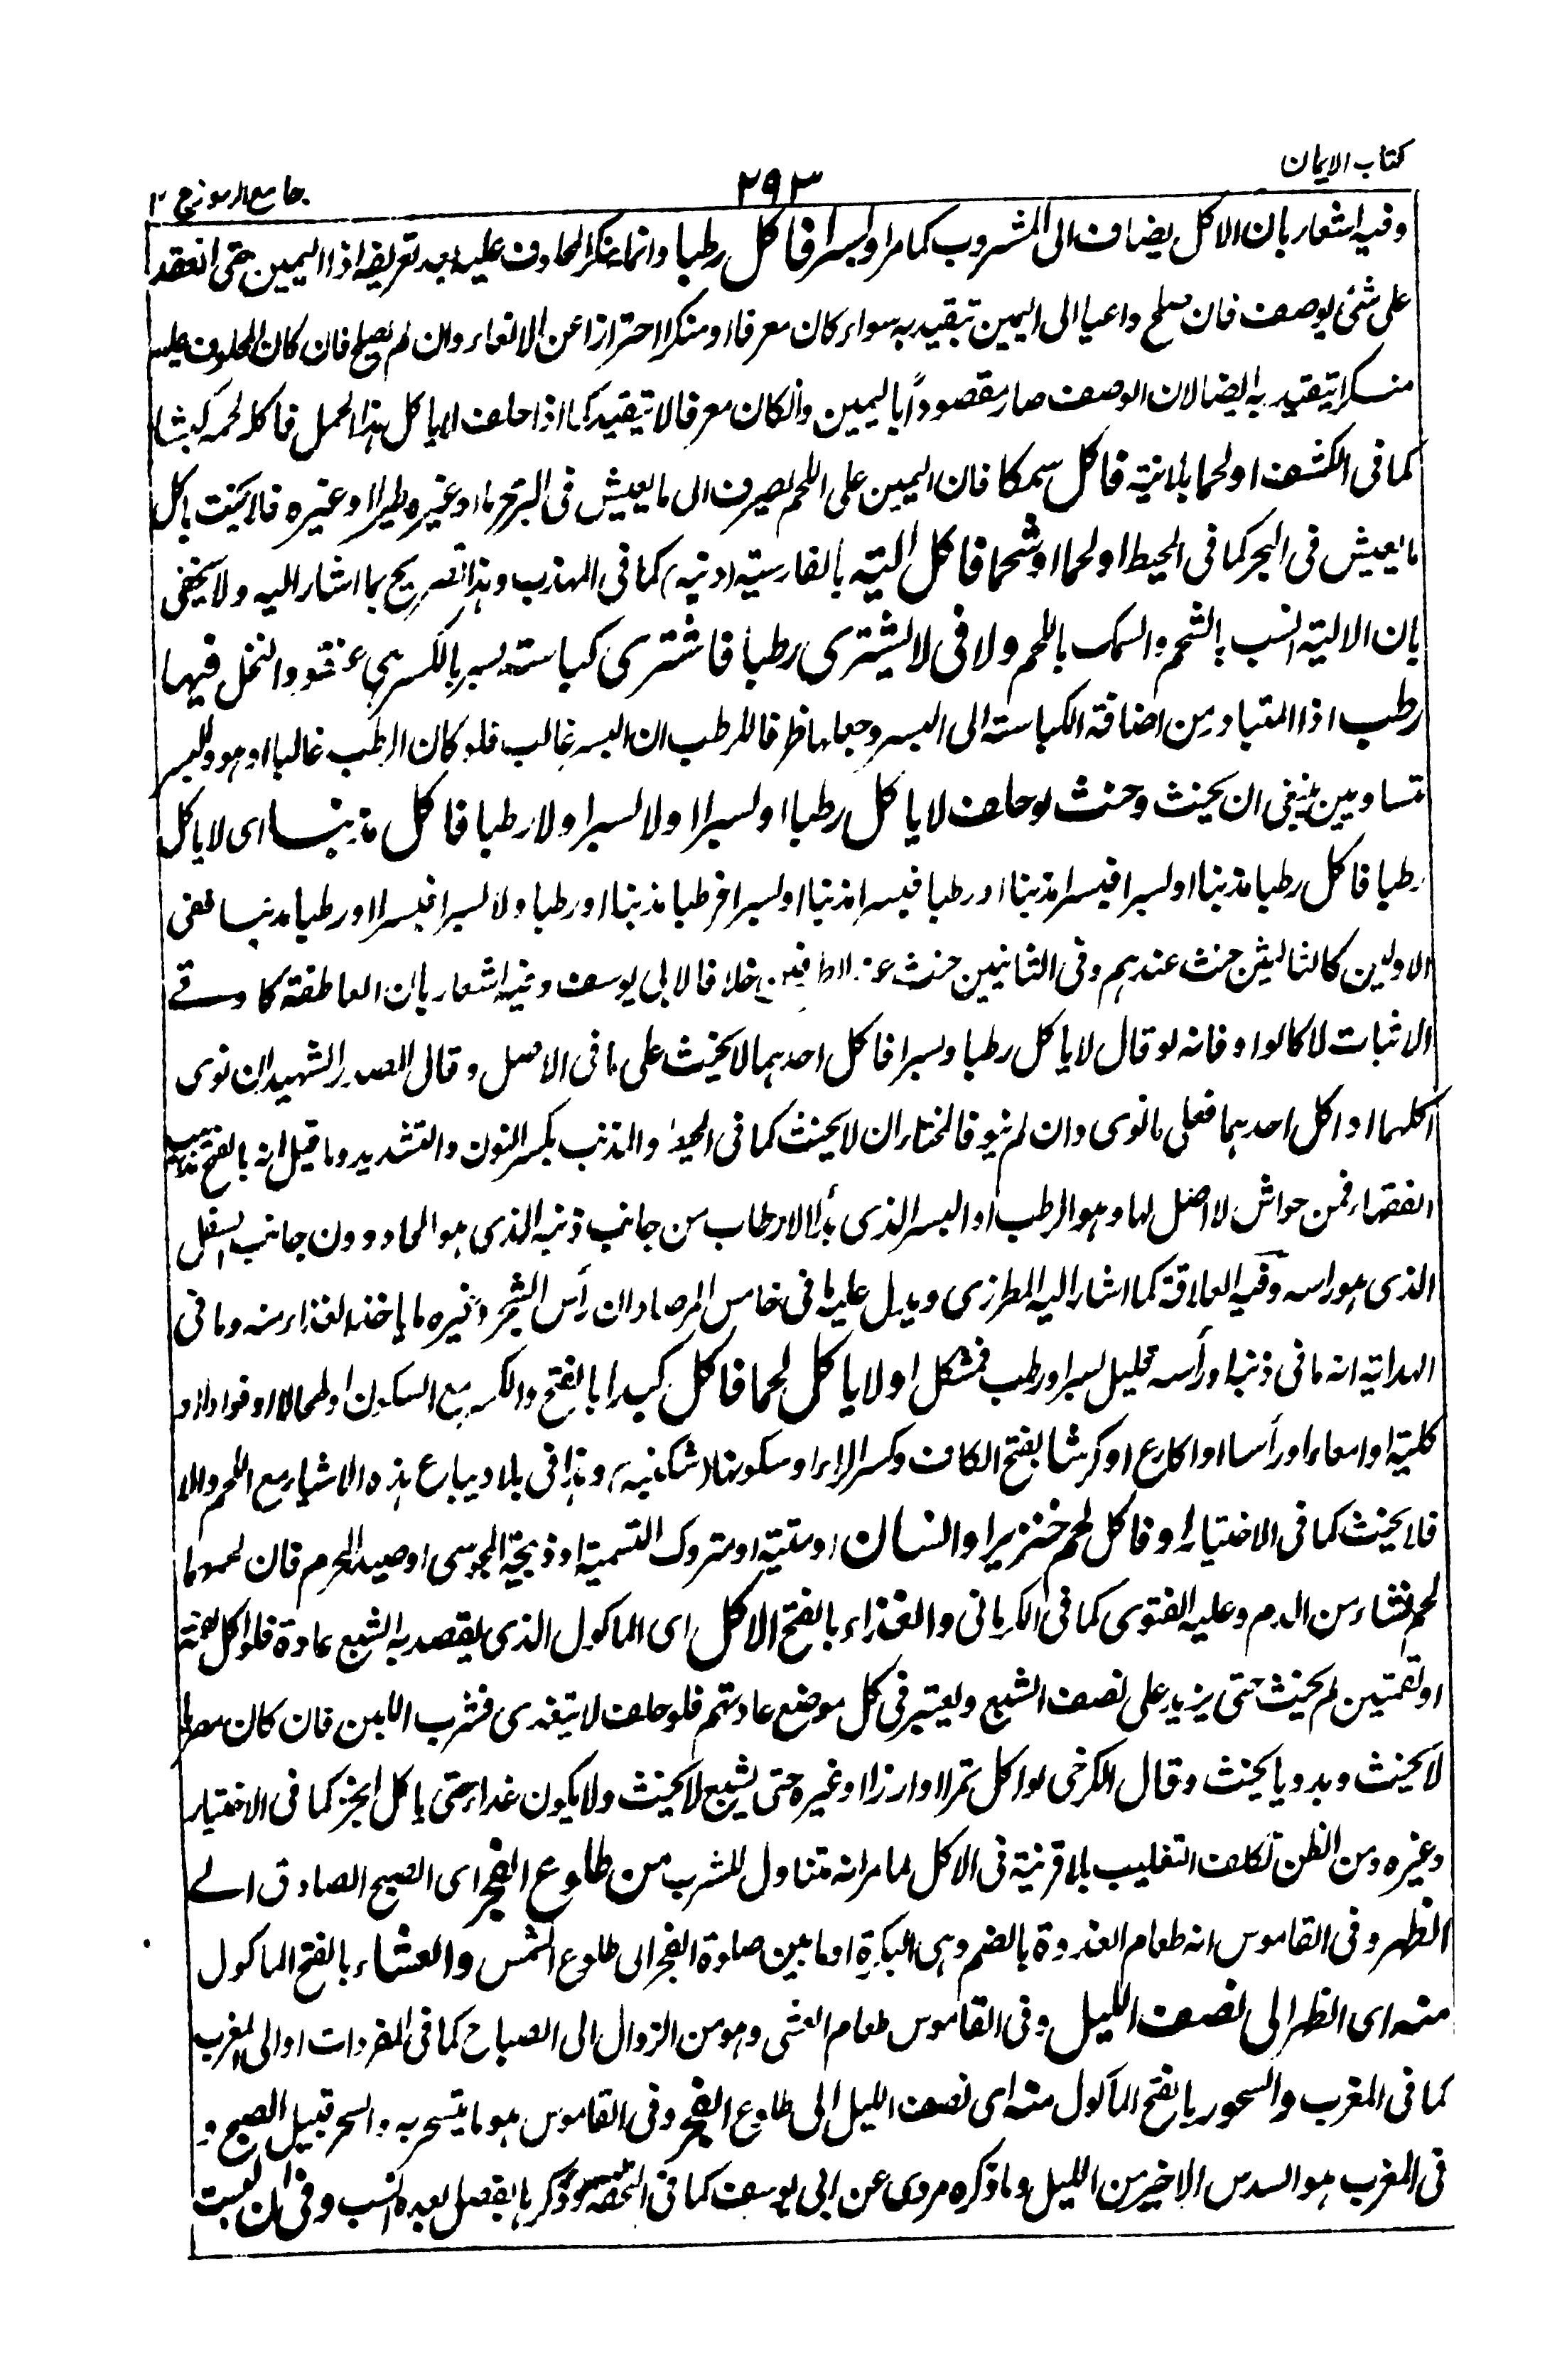 كتاب الايمان
٢٩٣
جامع الرموز ج ٢
وفيه اشعار بان الاكل يضاف الى المشروب كما مر او بسرا فاكل رطبا وانما ينكر المحلوف عليه بعد تعريفه اذ اليمين متى انعقد
على شئ بوصف فان صلح داعيا الى اليمين تتقيد به سواء كان معرفا او منكرا احترازا عن الالغاء وان لم يصلح فان كان المحلوف عليه
منكرا يتقيد به ايضا لان الوصف صار مقصودًا باليمين وانكان معرفا لا يتقيد كما اذا حلف لا ياكل هذا الحمل فاكله لحمه كبشا
كما فى الكشف او لحما بلا نية فاكل سمكا فان اليمين على اللحم يصرف الى ما يعيش فى البر محرما او غيره طيرا او غيره فلا يحنث باكل
ما يعيش فى البحر كما فى المحيط او لحما او شحما فاكل الية بالفارسية (دنبه) كما فى المهذب وهذا تصريح بما اشار اليه ولا يخفى
بان الالية انسب بالشحم والسمك باللحم ولا فى لا يشترى رطبا فاشترى كباسة بسر بالكسر هى عنقود النخل فيها
رطب اذ المتبادر من اضافة الكباسة الى البسر وجعلها ظرفا للرطب ان البسر غالب فلو كان الرطب غالبا او هو والبسر
متساويين ينبغى ان يحنث وحنث لو حلف لا ياكل رطبا او بسرا او لا بسرا ولا رطبا فاكل مذنبا اى لا ياكل
رطبا فاكل رطبا مذنبا او بسرا فبسرا مذنبا او رطبا فبسرا مذنبا او بسرا فرطبا مذنبا او رطبا ولا بسرا فبسرا او رطبا مذنبا ففى
الاولين كالثالثين حنث عندهم وفى الثانيين حنث عند الطرفين خلافا لابى يوسف وفيه اشعار بان العاطفة كا وفى
الاثبات لا كالواو فانه لو قال لا ياكل رطبا وبسرا فاكل احدهما لا يحنث على ما فى الاصل وقال الصدر الشهيد ان نوى
اكلهما او اكل احدهما فعلى ما نوى وان لم ينو فالمختار ان لا يحنث كما فى المحيط والمذنب بكسر النون والتشديد وما قيل انه بالفتح مذهب
الفقهاء فمن حواش لا اصل لها وهو الرطب او البسر الذى بدأ الارطاب من جانب ذنبه الذى هو الحاد دون جانب اسفل
الذى هو راسه وفيه العلاقة كما اشار اليه المطرزى ويدل عليه ما فى خامس المرصاد ان رأس الشجر وغيره ما ياخذ الغذاء منه وما فى
الهداية انه ما فى ذنبه او رأسه قليل بسر او رطب فمشكل او لا ياكل لحما فاكل كبدا بالفتح والكسر مع السكون او طحالا او فوادا او
كلية او امعاء او رأسا او اكارع او كرشا بفتح الكاف وكسر الراء او سكونها (شكنبه) وهذا فى بلاد يباع هذه الاشياء مع اللحم والا
فلا يحنث كما فى الاختيار او فاكل لحم خنزير او انسان او ميتة او متروك التسمية او ذبيحة المجوسى او صيد الحرم فان لحمها
لحم نشاء من الدم وعليه الفتوى كما فى الكرمانى والغذاء بالفتح الاكل اى الماكول الذى يقصد به الشبع عادة فلو اكل لقمة
او لقمتين لم يحنث حتى يزيد على نصف الشبع ويعتبر فى كل موضع عادتهم فلو حلف لا يتغدى فشرب اللبن فان كان مصريا
لا يحنث وبدويا يحنث وقال الكرخى لو اكل تمرا او ارزا او غيره حتى يشبع لا يحنث ولا يكون غداء حتى ياكل الخبز كما فى الاختيار
وغيره ومن الظن تكلف التغليب بلا قرينة فى الاكل لما مر انه متناول للشرب من طلوع الفجر اى الصبح الصادق الى
الظهر وفى القاموس انه طعام الغدوة بالضم وهى البكرة او ما بين صلوة الفجر الى طلوع الشمس والعشاء بالفتح الماكول
منه اى الظهر الى نصف الليل وفى القاموس طعام العشى وهو من الزوال الى الصباح كما فى المفردات او الى المغرب
كما فى المغرب والسحور بالفتح المأكول منه اى نصف الليل الى طلوع الفجر وفى القاموس هو ما يتسحر به والسحر قبيل الصبح و
فى المغرب هو السدس الاخير من الليل وما ذكره مروى عن ابى يوسف كما فى التحفه وذكرها بفصل بعده انسب وفى ان لبست